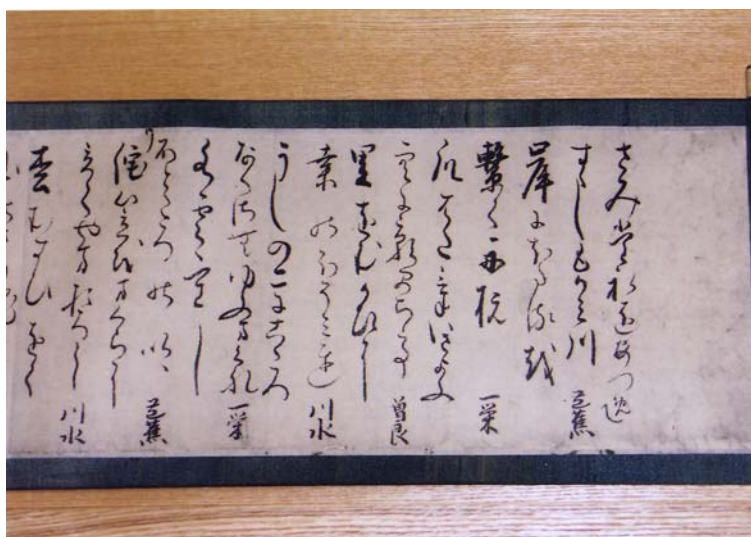 さみたれをあつめて
すゝしもかミ川 芭蕉
岸にほたる越
繋く舟杭 一栄
瓜はたけいさよふ
空に影まちて 曽良
里をむかひに
桑のほそミち 川水
うしの子にこゝろ
なくさむゆふまくれ 一栄
水雲重し
ふところの吟 芭蕉
侘笠をまくらに
立てやまおろし 川水
松むすひをく